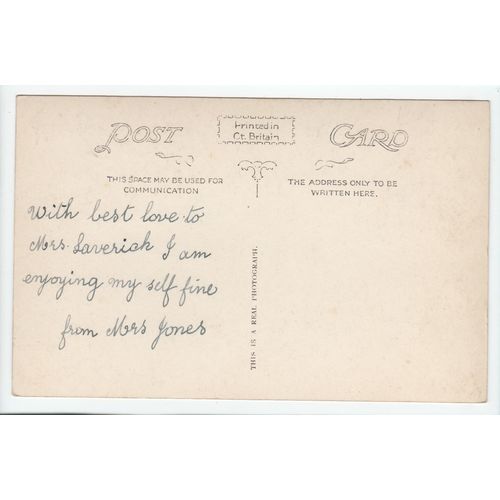 POST
Printed in
Gt. Britain
CARD
THIS SPACE MAY BE USED FOR
COMMUNICATION
THE ADDRESS ONLY TO BE
WRITTEN HERE.
With best love to
Mrs. Laverick I am
enjoying my self fine
from Mrs Jones
THIS IS A REAL PHOTOGRAPH.